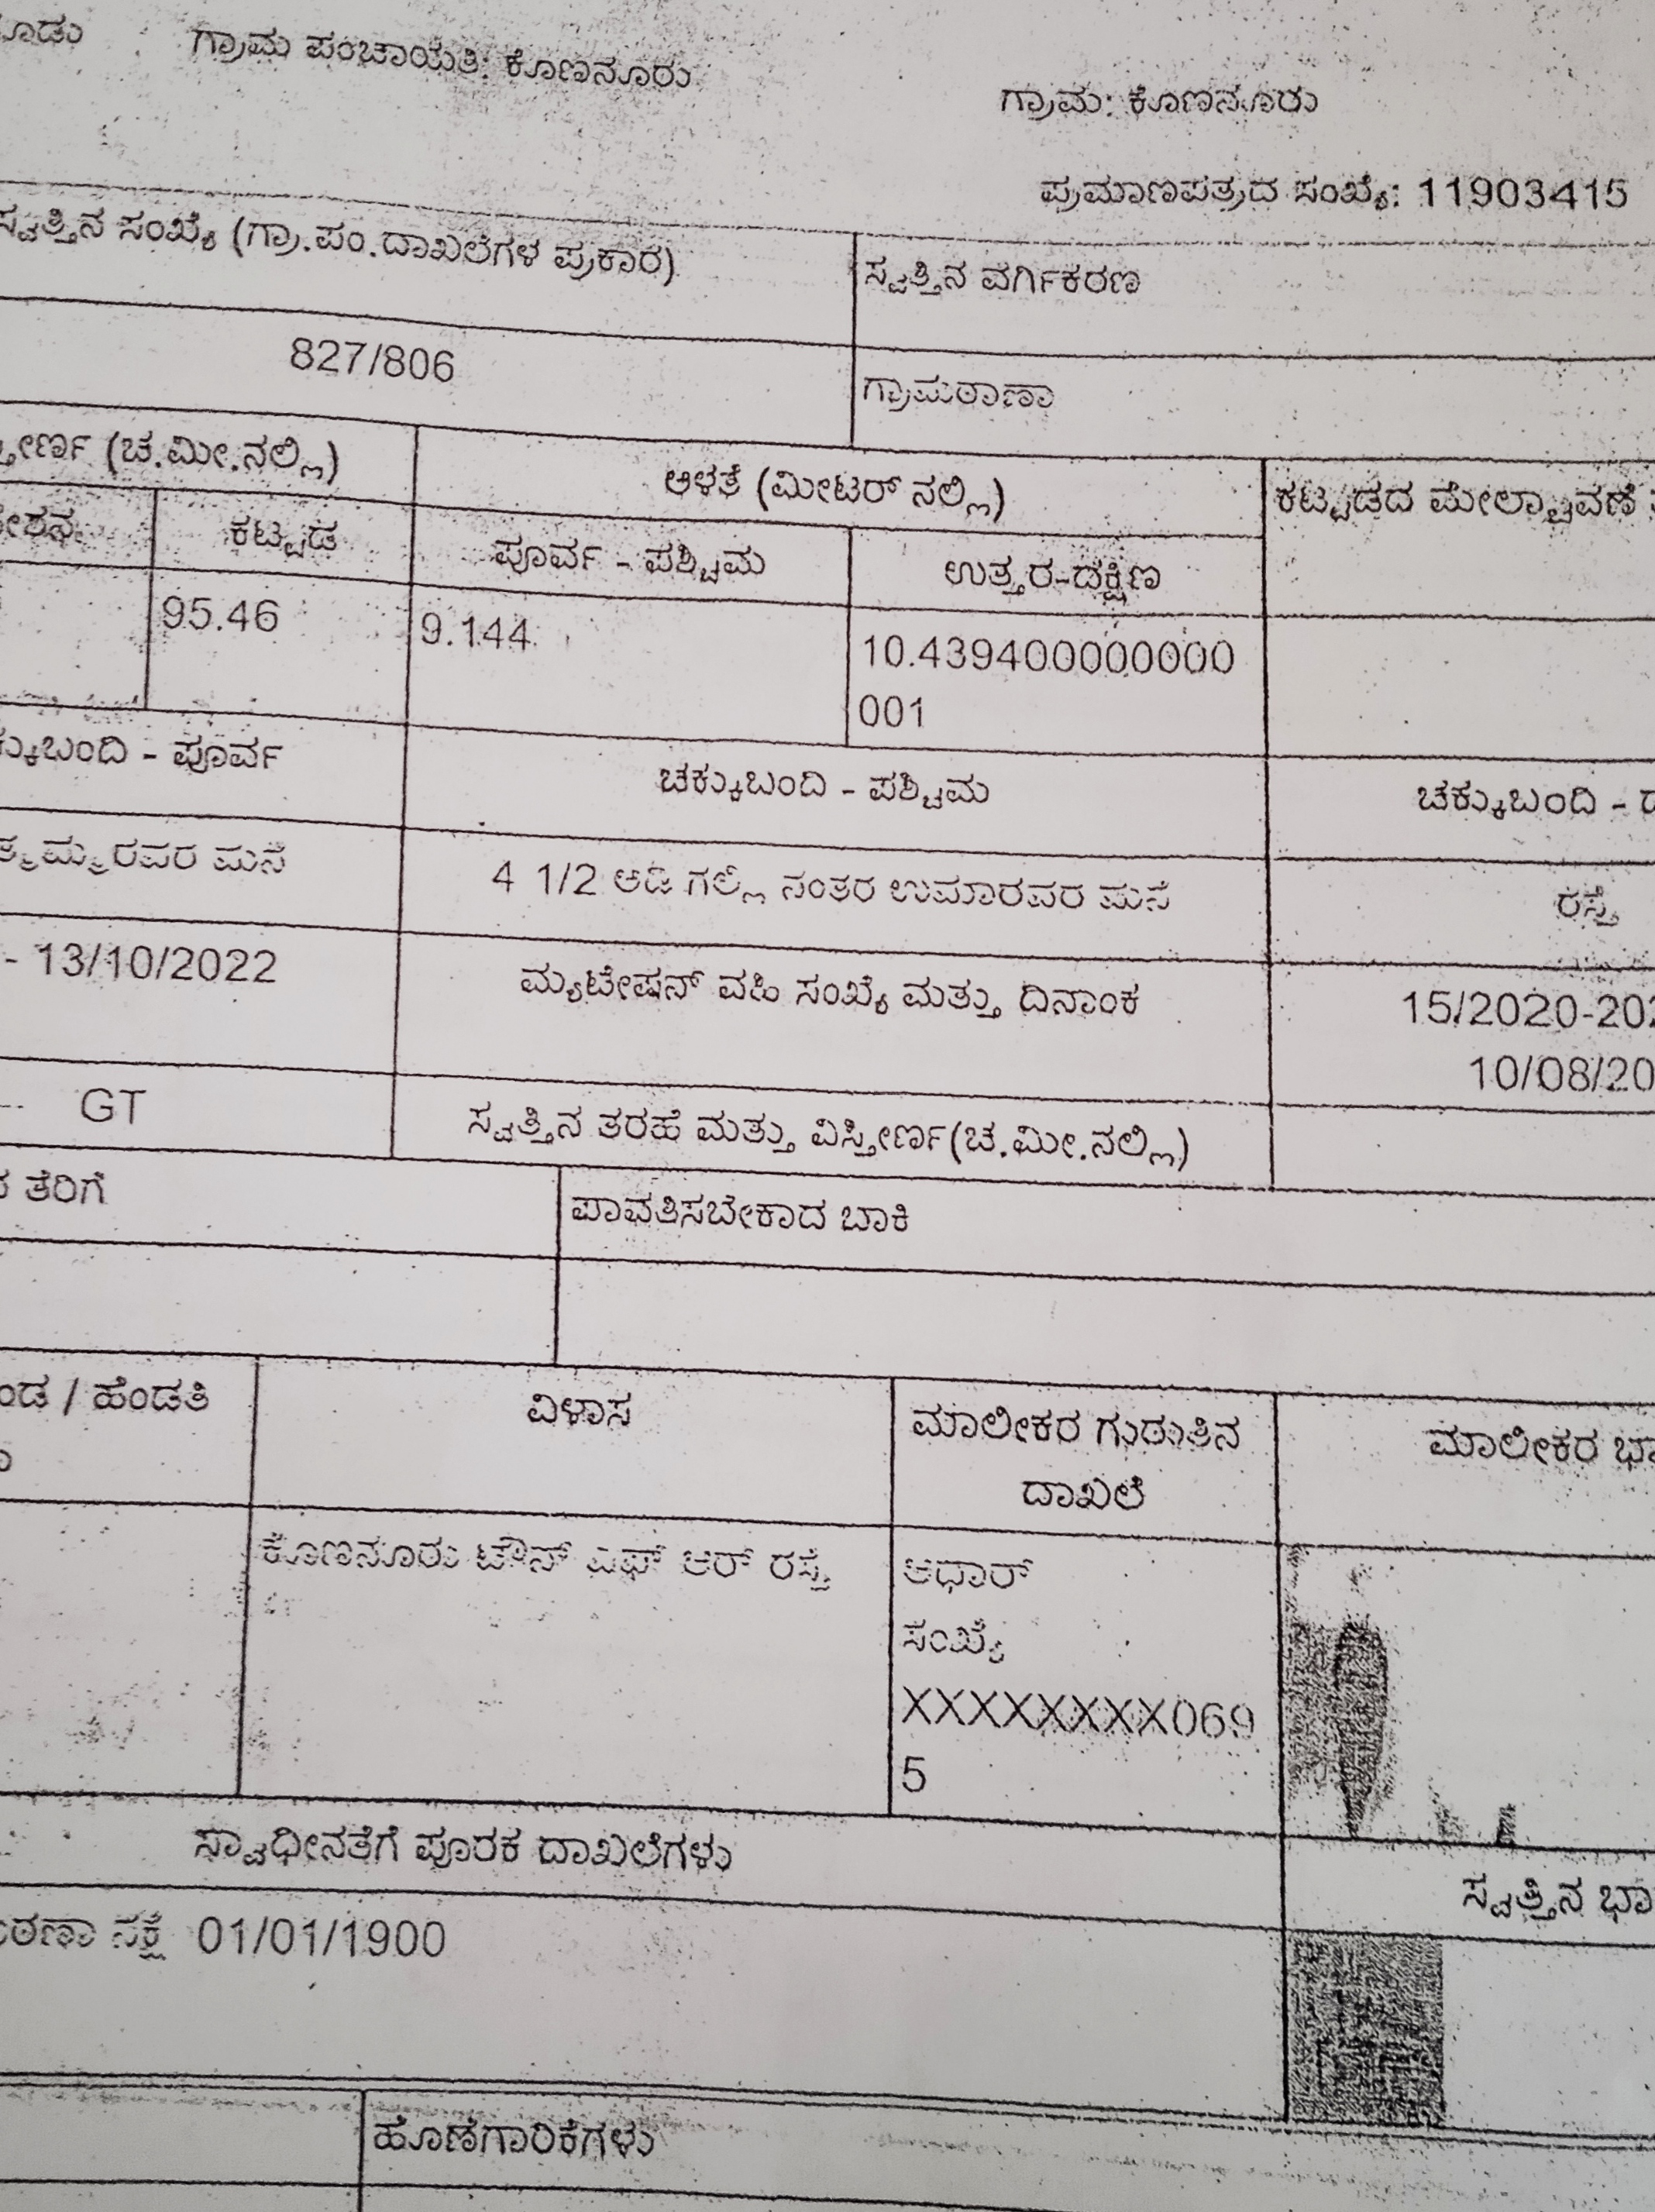 ಗ್ರಾಮ ಪಂಚಾಯತಿ: ಕೊಣನೂರು
ಗ್ರಾಮ: ಕೊಣನೂರು
ಪ್ರಮಾಣಪತ್ರದ ಸಂಖ್ಯೆ: 11903415
ಸ್ವತ್ತಿನ ಸಂಖ್ಯೆ (ಗ್ರಾ.ಪಂ.ದಾಖಲೆಗಳ ಪ್ರಕಾರ)
ಸ್ವತ್ತಿನ ವರ್ಗೀಕರಣ
827/806
ಗ್ರಾಮಠಾಣಾ
(ಚ.ಮೀ.ನಲ್ಲಿ)
ಅಳತೆ (ಮೀಟರ್ ನಲ್ಲಿ)
ಕಟ್ಟಡದ ಮೇಲ್ಛಾವಣಿ
ಕಟ್ಟಡ
ಪೂರ್ವ - ಪಶ್ಚಿಮ
ಉತ್ತರ-ದಕ್ಷಿಣ
95.46
9.144
10.439400000000
001
- ಪೂರ್ವ
ಚಕ್ಕುಬಂದಿ - ಪಶ್ಚಿಮ
ಚಕ್ಕುಬಂದಿ -
ಮನೆ
4 1/2 ಅಡಿ ಗಲ್ಲಿ ನಂತರ ಉಮಾರವರ ಮನೆ
ರಸ್ತೆ
- 13/10/2022
ಮ್ಯುಟೇಷನ್ ವಹಿ ಸಂಖ್ಯೆ ಮತ್ತು ದಿನಾಂಕ
15/2020-202
10/08/20
GT
ಸ್ವತ್ತಿನ ತರಹೆ ಮತ್ತು ವಿಸ್ತೀರ್ಣ(ಚ.ಮೀ.ನಲ್ಲಿ)
ತೆರಿಗೆ
ಪಾವತಿಸಬೇಕಾದ ಬಾಕಿ
/ ಹೆಂಡತಿ
ವಿಳಾಸ
ಮಾಲೀಕರ ಗುರುತಿನ
ದಾಖಲೆ
ಮಾಲೀಕರ
ಕೊಣನೂರು ಟೌನ್ ಎಫ್ ಆರ್ ರಸ್ತೆ
ಆಧಾರ್
ಸಂಖ್ಯೆ
XXXXXXXX069
5
ಸ್ವಾಧೀನತೆಗೆ ಪೂರಕ ದಾಖಲೆಗಳು
ಸ್ವತ್ತಿನ
ನಕ್ಷೆ 01/01/1900
ಹೊಣೆಗಾರಿಕೆಗಳು